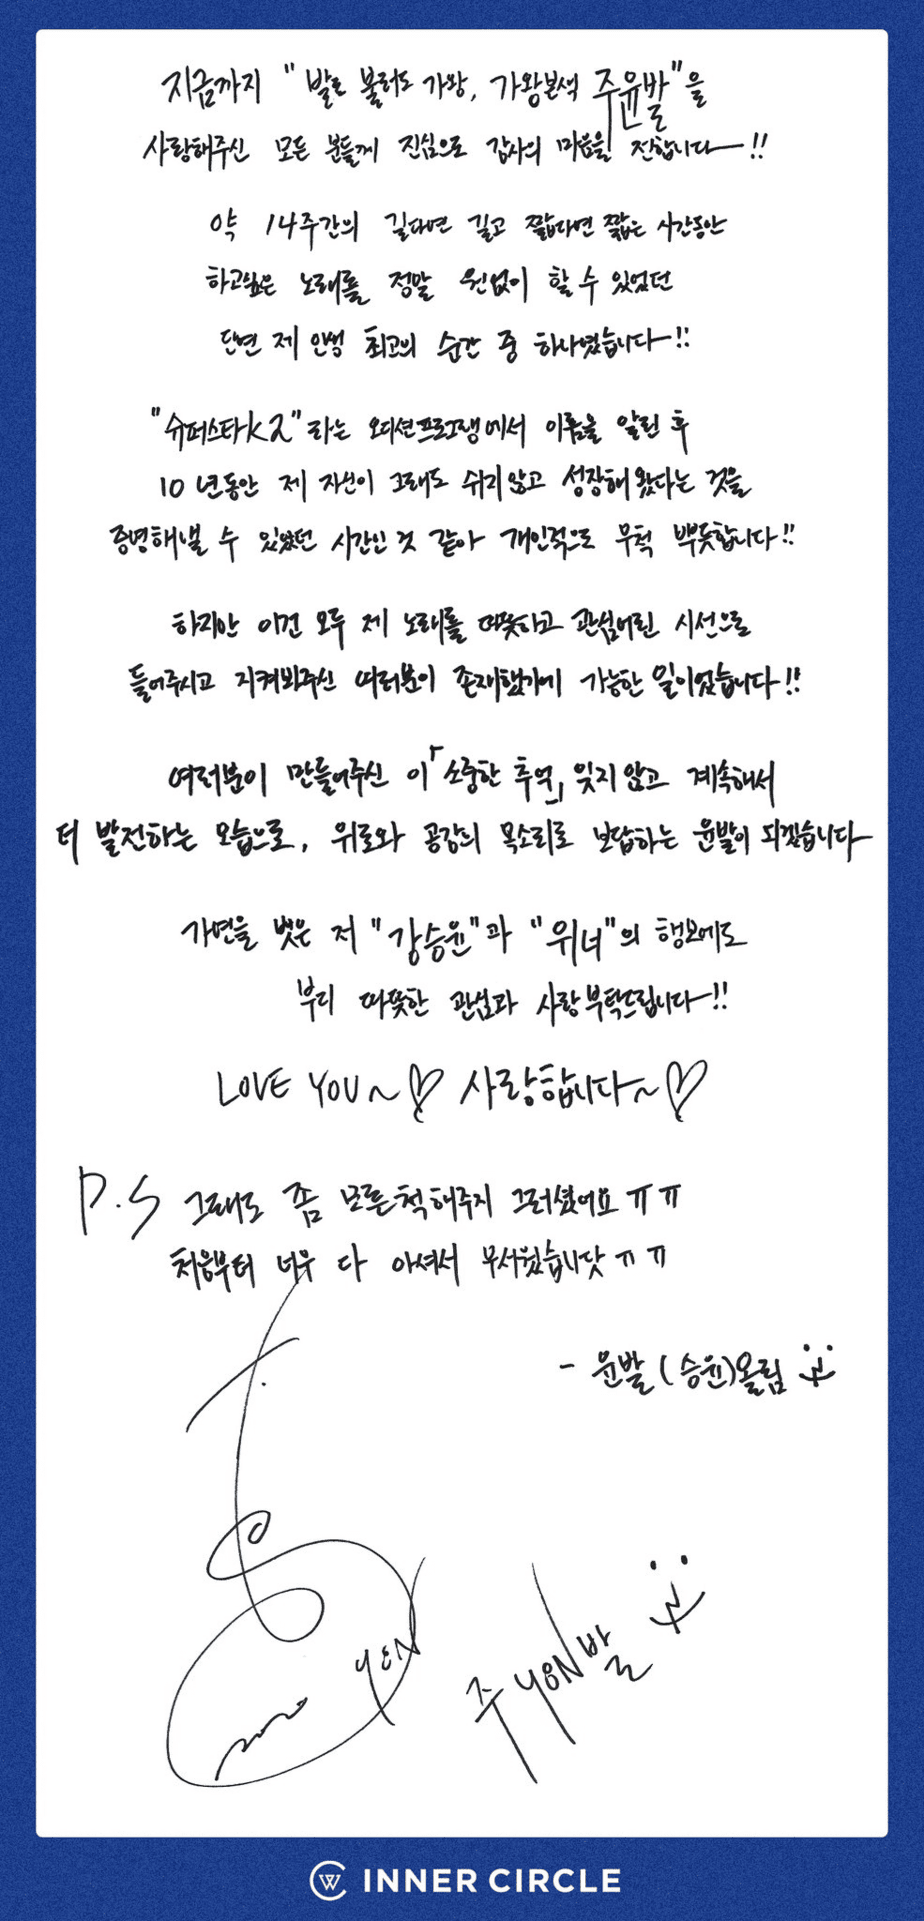 지금까지 "발로 불러도 가왕, 가왕본색 주윤발"을
사랑해주신 모든 분들께 진심으로 감사의 마음을 전합니다-!!
약 14주간의 길다면 길고 짧다면 짧은 시간동안
하고싶은 노래를 정말 원없이 할 수 있었던
단연 제 인생 최고의 순간 중 하나였습니다-!!
"슈퍼스타K2"라는 오디션프로그램에서 이름을 알린 후
10년동안 제 자신이 그래도 쉬지않고 성장해왔다는 것을
증명해낼 수 있었던 시간인 것 같아 개인적으로 무척 뿌듯합니다!!
하지만 이건 모두 제 노래를 따뜻하고 관심어린 시선으로
들어주시고 지켜봐주신 여러분이 존재했기에 가능한 일이었습니다!!
여러분이 만들어주신 이「소중한 추억」잊지않고 계속해서
더 발전하는 모습으로, 위로와 공감의 목소리로 보답하는 윤발이 되겠습니다
가면을 벗은 저 "강승윤"과 "위너"의 행보에도
부디 따뜻한 관심과 사랑부탁드립니다-!!
LOVE YOU~♡ 사랑합니다~♡
P.S 그래도 좀 모른척해주지 그러셨어요ㅠㅠ
처음부터 너무 다 아셔서 무서웠습니닷ㅠㅠ
- 윤발(승윤)올림
YOON
주YOON발
INNER CIRCLE